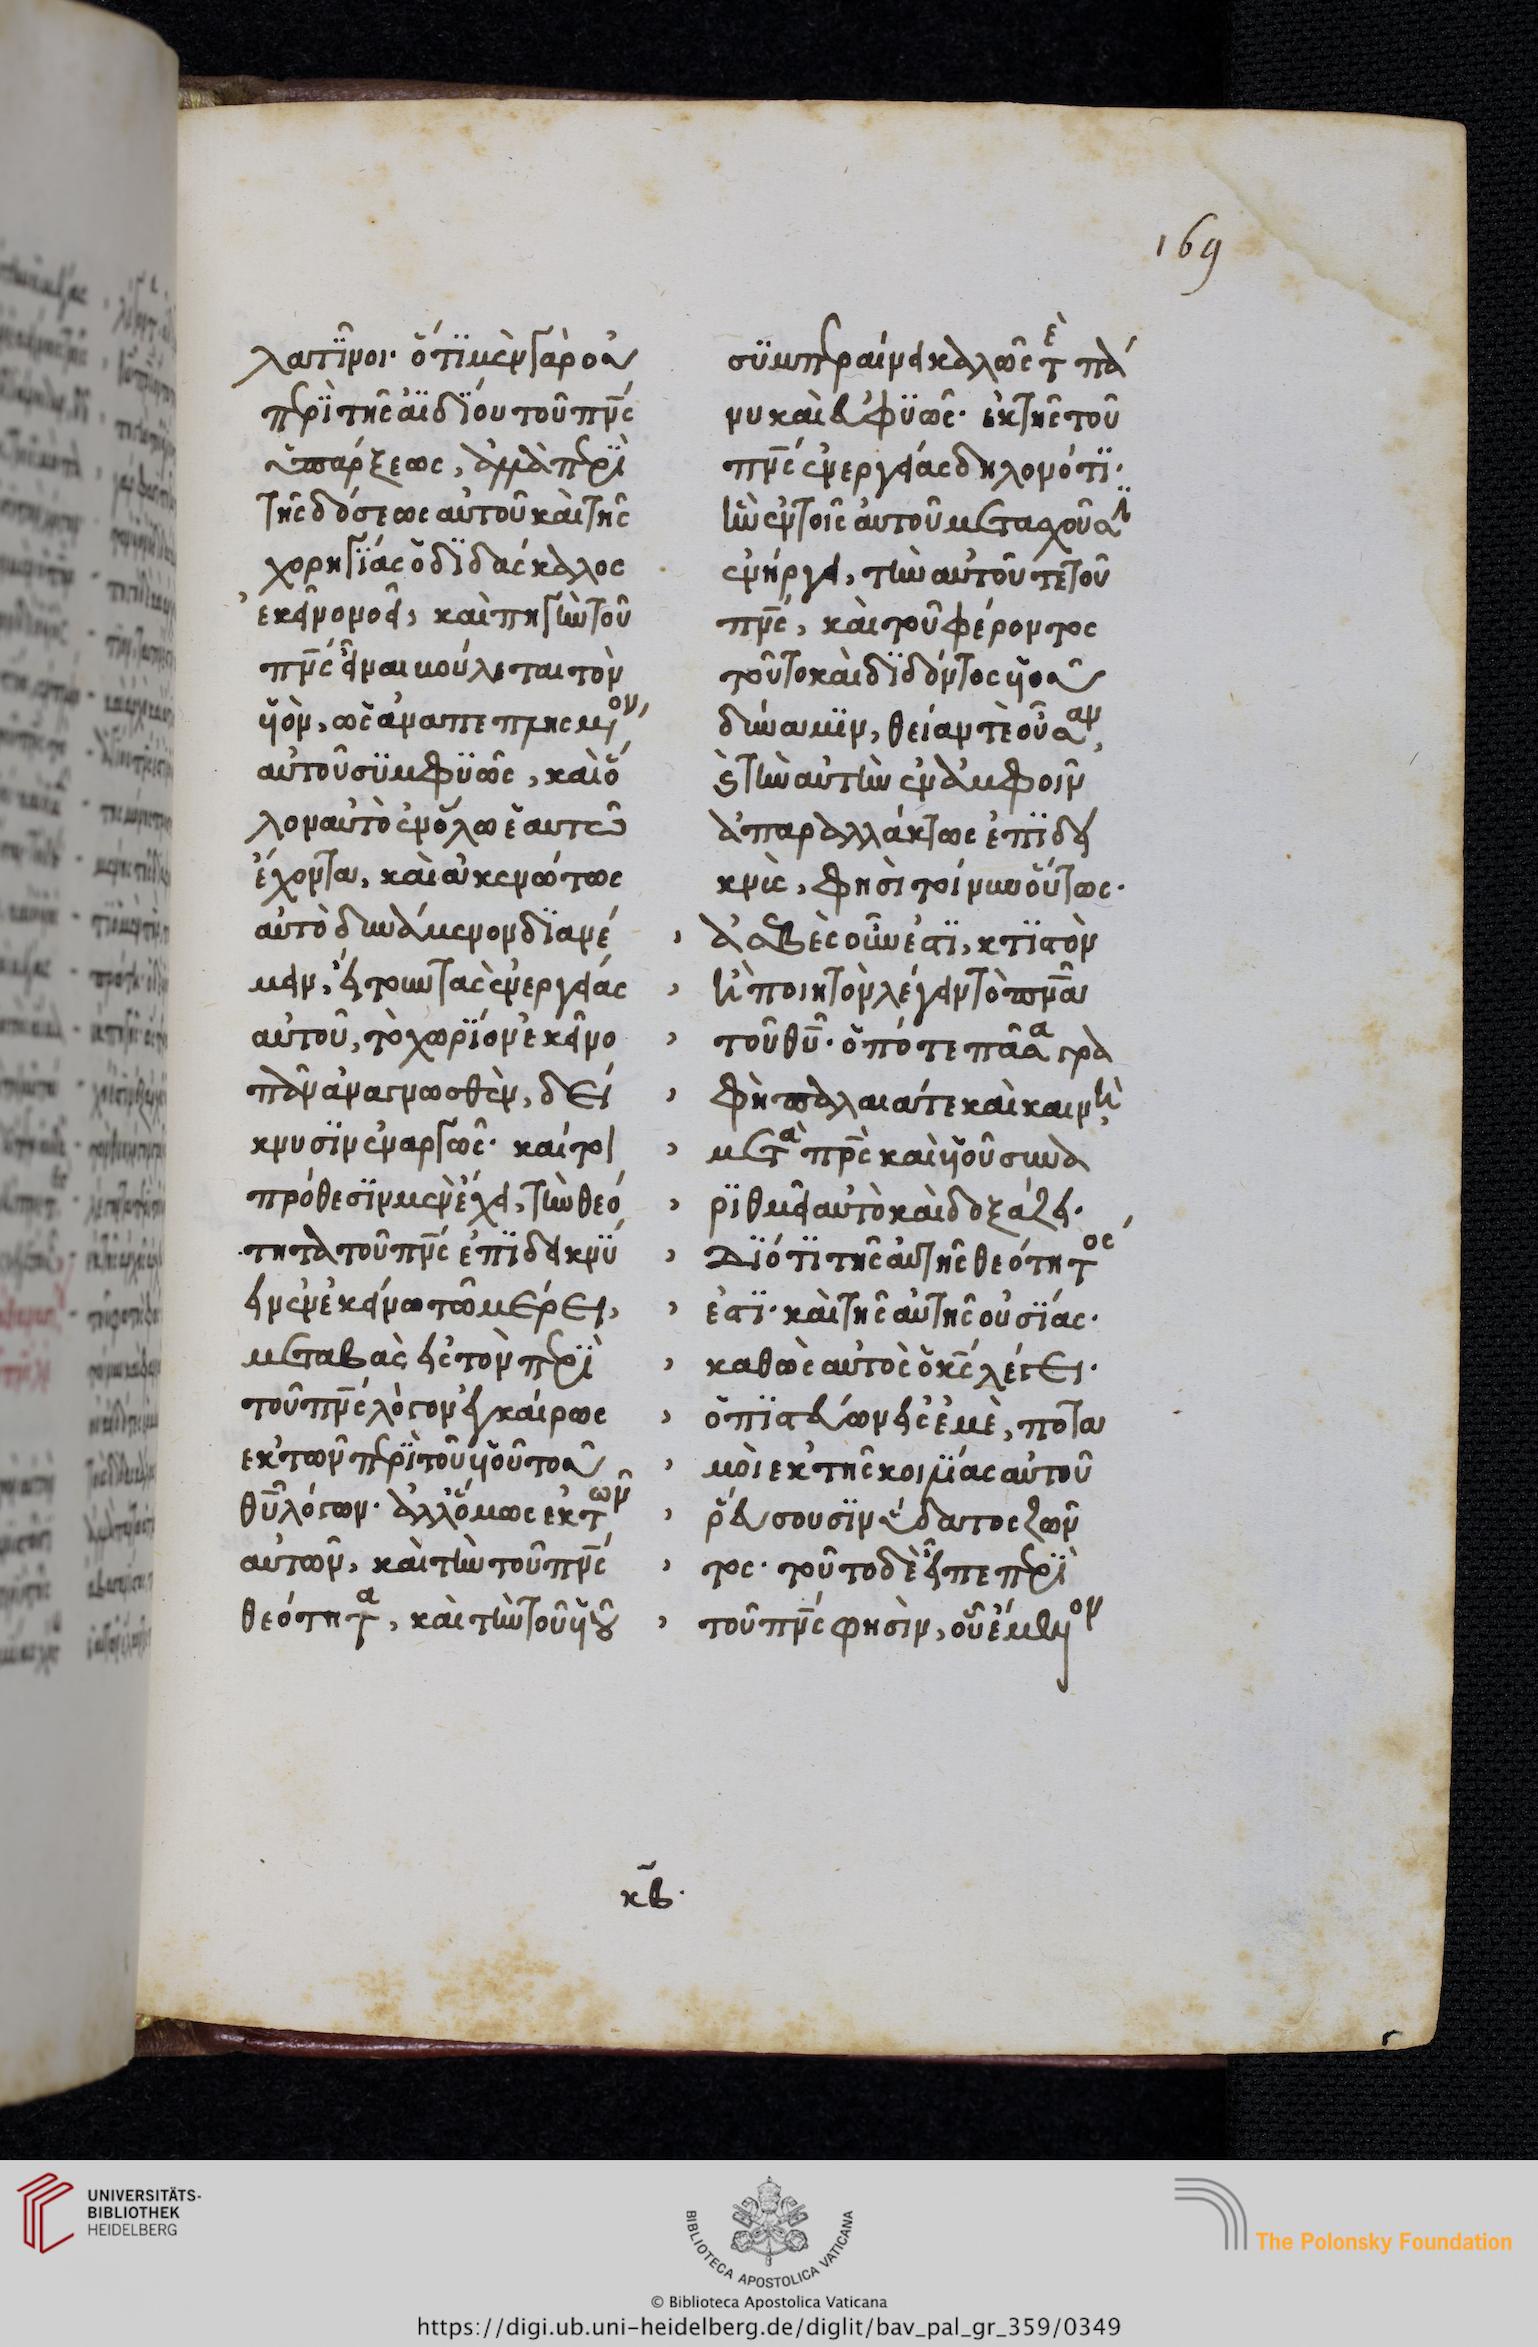 169
λατῖνοι· ὅτι μὲν γὰρ οὐ
περὶ τῆς ἀϊδίου τοῦ πνς
ὑπάρξεως, ἀλλὰ περὶ
τῆς δόσεως αὐτοῦ καὶ τῆς
χορηγίας ὁ διδάσκαλος
ἐκεῖνος, καὶ πηγὴν τοῦ
πνς εἶναι βούλεται τὸν
υἱὸν, ὡς ἀναπεπτησμένον,
αὐτοῦ συμφυῶς, καὶ ὅ
λον αὐτὸ ἐν ὅλω ἑαυτῶ
ἔχοντα, καὶ ἀκενώτως
αὐτὸ δυνάμενον διανέ
μειν, εἴτουν τὰς ἐνεργείας
αὐτοῦ, τὸ χωρίον ἐκεῖνο
πᾶν ἀναγνωσθὲν, δεί
κνυσιν ἐναργῶς· καίτοι
πρόθεσιν μὲν ἔχει, τὴν θεό
τητα τοῦ πνς ἐπιδεικνύ
ειν ἐν ἐκείνω τῶ μέρει,
μεταβὰς εἰς τὸν περὶ
τοῦ πνς λόγον εὐκαίρως
ἐκ τῶν περὶ τοῦ υἱοῦ τοῦ
θυ λόγων· ἀλλ' ὅμως ἐκ τῶν
αὐτῶν, καὶ τὴν τοῦ πνς
θεότητα, καὶ τὴν τοῦ υἱοῦ
συμπεραίνει καλῶς τὲ πά
νυ καὶ εὐφυῶς· ἐκ τῆς τοῦ
πνς ἐνεργείας δηλονότι·
ἣν ἐν τοῖς αὐτοῦ μεταχοῦσιν
ἐνήργει, τὴν αὐτοῦ τε τοῦ
πνς, καὶ τοῦ φέροντος
τοῦτο καὶ διδόντος υἱοῦ
δύναμιν, θείαν τὲ οὖσαν,
καὶ τὴν αὐτὴν ἐν ἀμφοῖν
ἀπαραλλάκτως ἐπιδει
κνὺς, φησὶ τοίνυν οὕτως·
ἀσεβὲς οὖν ἐστι, κτιστὸν
ἢ ποιητὸν λέγειν τὸ πνα
τοῦ θυ· ὁπότε πᾶσα γρα
φὴ παλαιά τε καὶ καινὴ,
μετὰ πρς καὶ υἱοῦ συνα
ριθμεῖ αὐτὸ καὶ δοξάζει·
Διότι τῆς αὐτῆς θεότητος
ἐστι· καὶ τῆς αὐτῆς οὐσίας·
καθὼς αὐτὸς ὁ κς λέγει·
ὁ πιστεύων εἰς ἐμὲ, ποτα
μοὶ ἐκ τῆς κοιλίας αὐτοῦ
ῥεύσουσιν ὕδατος ζῶν
τος· τοῦτο δὲ εἶπε περὶ
τοῦ πνς φησὶν, οὗ ἔμελλον
κβ·
UNIVERSITÄTS-
BIBLIOTHEK
HEIDELBERG
BIBLIOTECA APOSTOLICA VATICANA
The Polonsky Foundation
© Biblioteca Apostolica Vaticana
https://digi.ub.uni-heidelberg.de/diglit/bav_pal_gr_359/0349